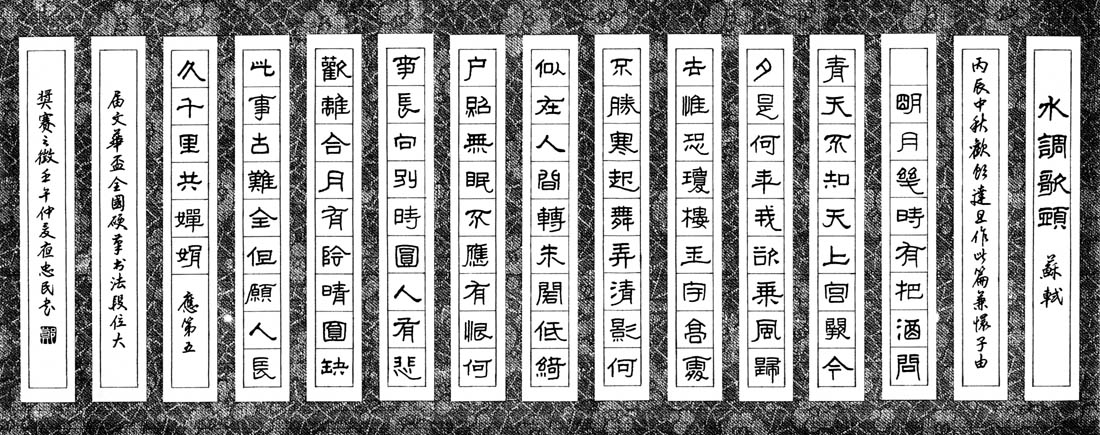 水調歌頭 蘇軾
丙辰中秋歡飲達旦作此篇兼懷子由
明月幾時有把酒問
青天不知天上宮闕今
夕是何年我欲乘風歸
去惟恐瓊樓玉宇高處
不勝寒起舞弄清影何
似在人間轉朱閣低綺
户照無眠不應有恨何
事長向別時圓人有悲
歡離合月有陰晴圓缺
此事古難全但願人長
久千里共嬋娟 應第五
届文華盃全國硬筆书法段位大
奬賽之徵壬午仲夏夜忠民书